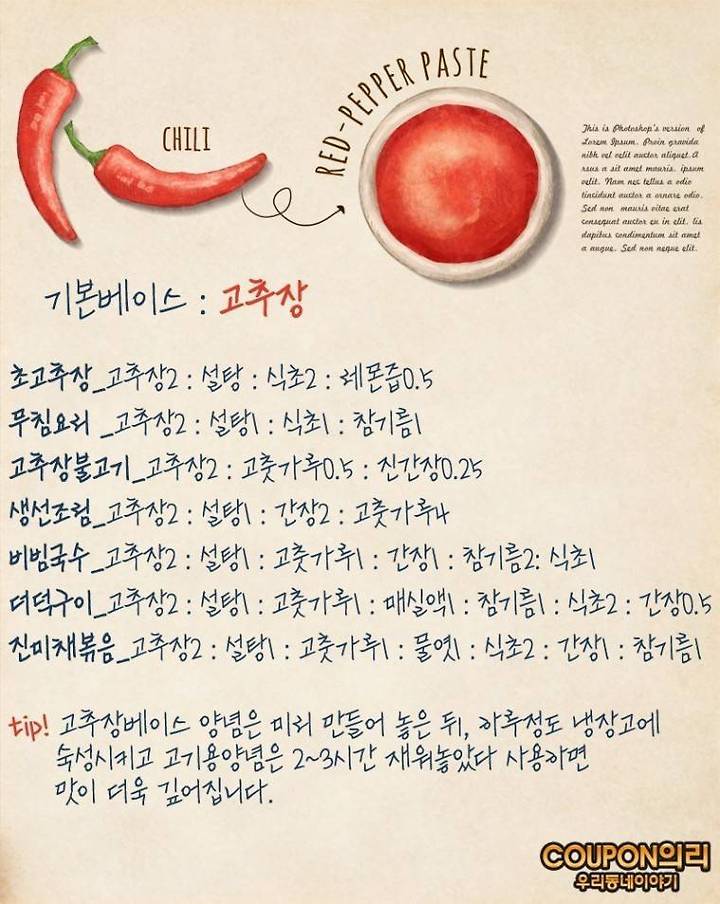 CHILI
RED-PEPPER PASTE
This is Photoshop's version of
Lorem Ipsum. Proin gravida
nibh vel velit auctor aliquet. A
rsus a sit amet mauris. ipsum
velit. Nam nec tellus a odio
tincidunt auctor a ornare odio.
Sed non mauris vitae erat
consequat auctor eu in elit. lis
dapibus condimentum sit amet
a augue. Sed non neque elit.
기본베이스 : 고추장
초고추장_고추장2 : 설탕 : 식초2 : 레몬즙0.5
무침요리 _고추장2 : 설탕1 : 식초1 : 참기름1
고추장불고기_고추장2 : 고춧가루0.5 : 진간장0.25
생선조림_고추장2 : 설탕1 : 간장2 : 고춧가루4
비빔국수_고추장2 : 설탕1 : 고춧가루1 : 간장1 : 참기름2: 식초1
더덕구이_고추장2 : 설탕1 : 고춧가루1 : 매실액1 : 참기름1 : 식초2 : 간장0.5
진미채볶음_고추장2 : 설탕1 : 고춧가루1 : 물엿1 : 식초2 : 간장1 : 참기름1
tip! 고추장베이스 양념은 미리 만들어 놓은 뒤, 하루정도 냉장고에
숙성시키고 고기용양념은 2~3시간 재워놓았다 사용하면
맛이 더욱 깊어집니다.
COUPON의리
우리동네이야기